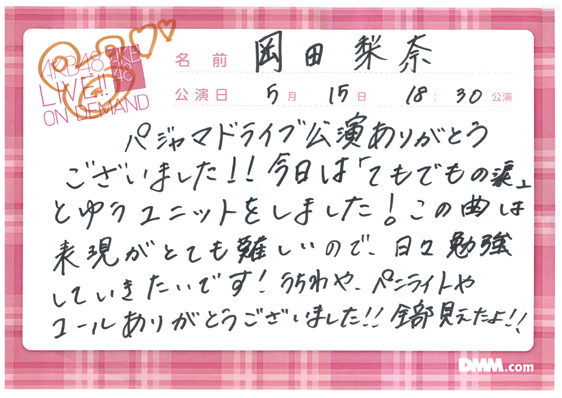 AKB48 AKB48
LIVE!!
ON DEMAND
名前 岡田梨奈
公演日 5月 15日 18:30公演
パジャマドライブ公演ありがとう
ございました!!今日は「てもでもの涙」
とゆうユニットをしました!この曲は
表現がとても難しいので、日々勉強
していきたいです!うちわや、ペンライトや
コールありがとうございました!!全部見えたよ!!
DMM.com